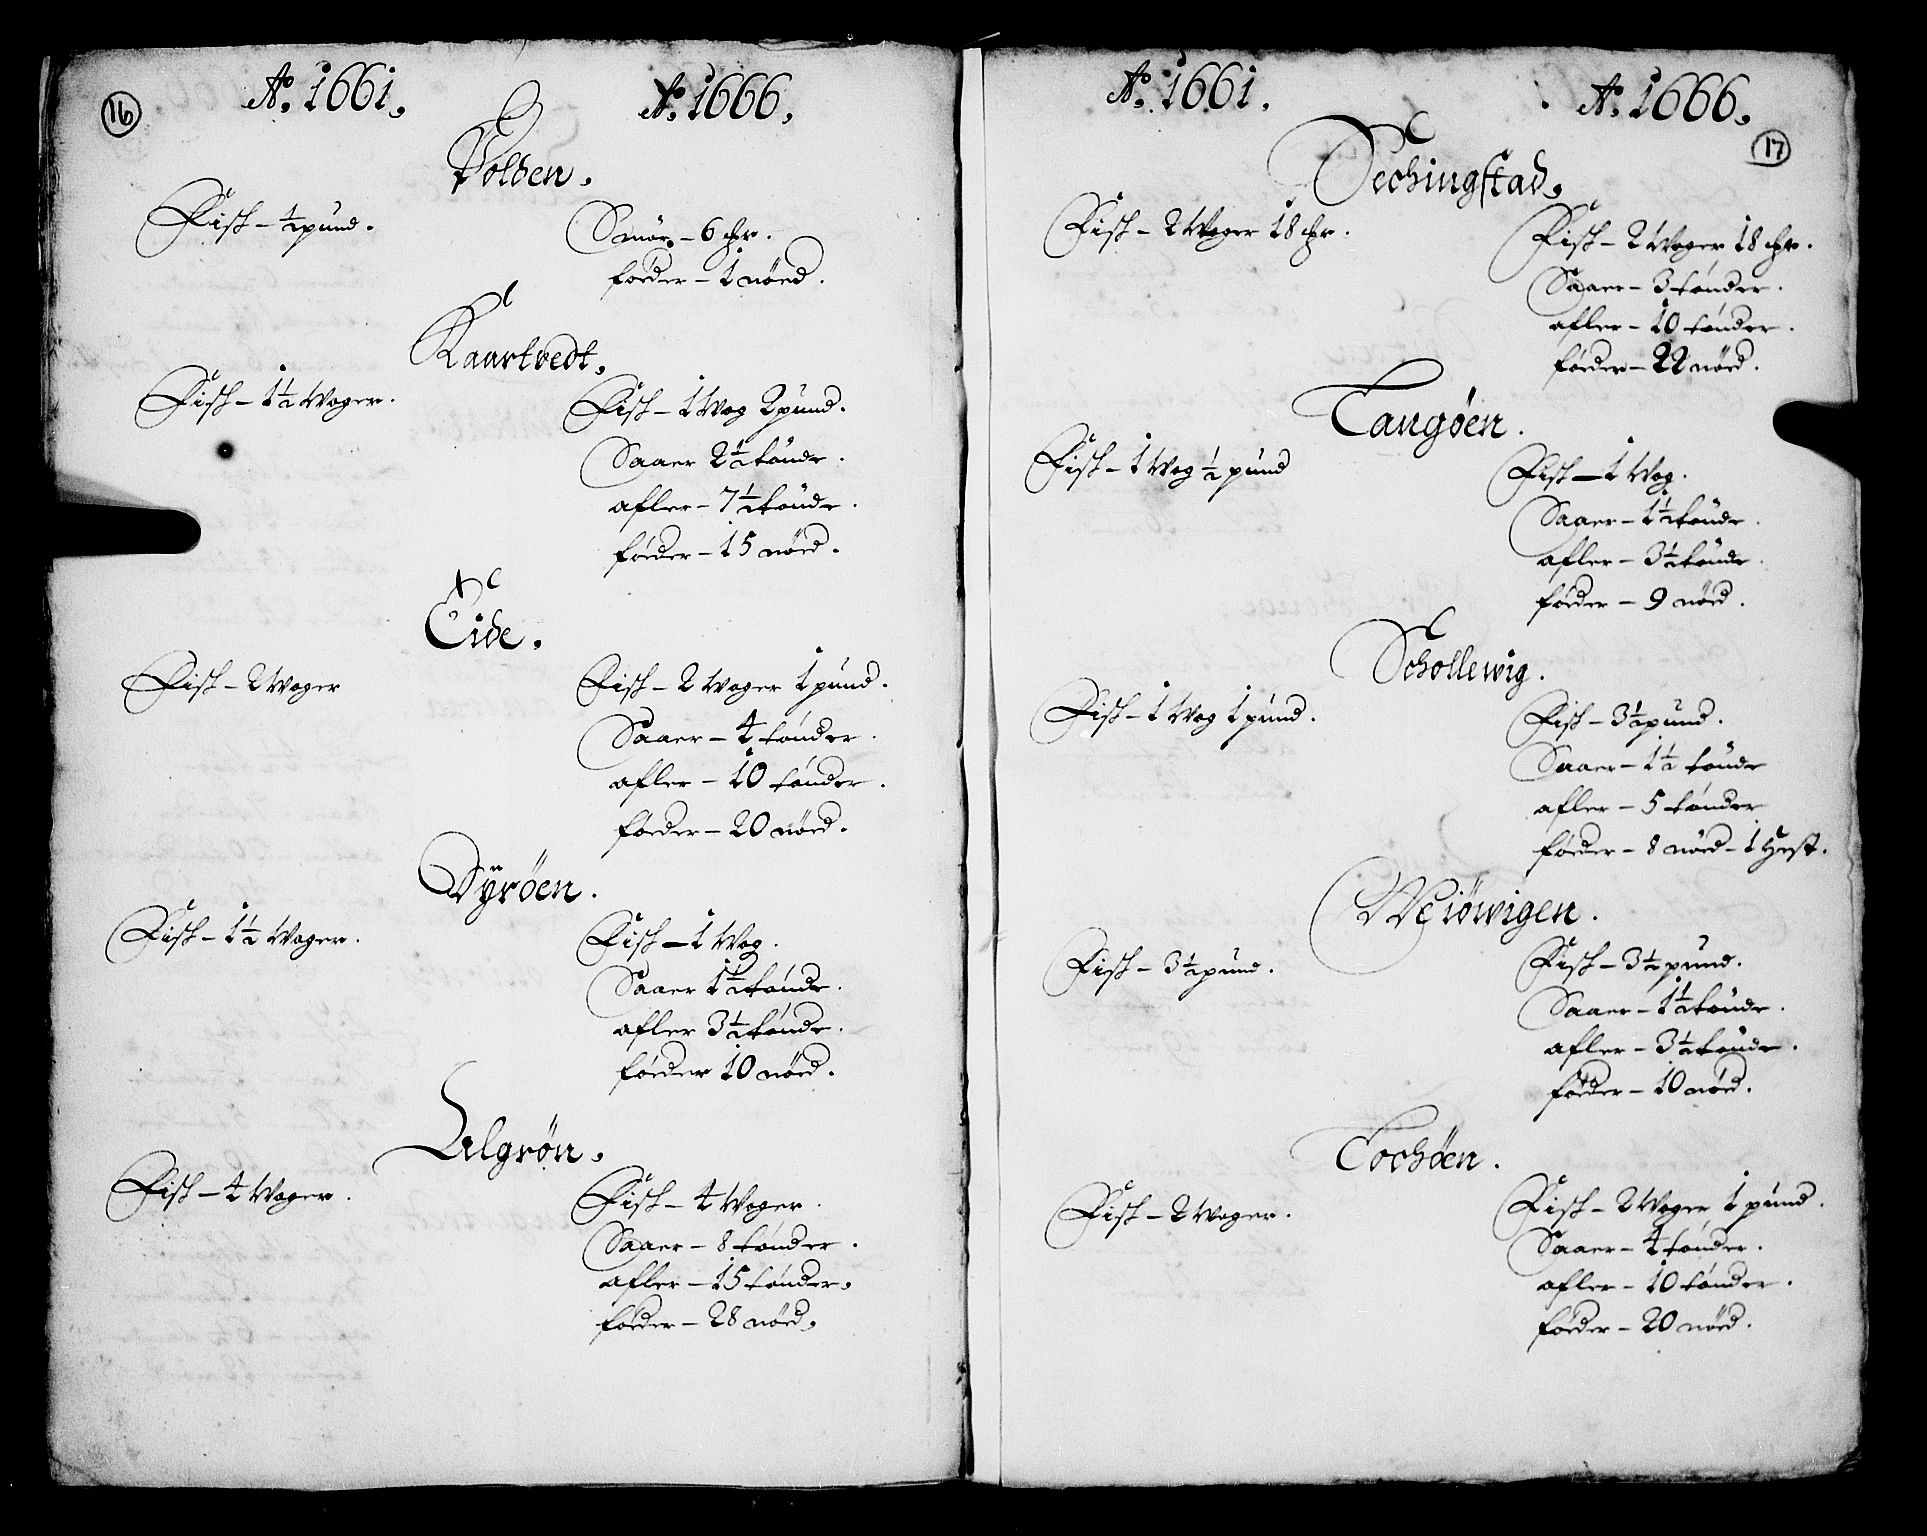 16
Ao. 1661. Ao. 1666.
Volden.
Fisk - ½ pund. Smör - 6 
föeder - 1 nöed.
Kaartvedt.
Fisk - 1½ Woger. Fisk - 1 Wog 2 pund.
Saaer 2½ tönde.
afler - 7½ tönde.
föeder - 15 nöed.
Eide.
Fisk - 2 Woger Fisk - 2 Woger 1 pund.
Saaer - 4 tönder.
afler - 10 tönder.
föeder - 20 nöed.
Dyröen.
Fisk - 1½ Woger. Fisk - 1 Wog.
Saaer 1½ tönde.
afler 3½ tönde.
föeder 10 nöed.
Algrön.
Fisk - 4 Woger. Fisk - 4 Woger.
Saaer - 8 tönder.
afler - 15 tönder.
föeder - 28 nöed.
17
Ao. 1661. Ao. 1666.
Techingstad.
Fisk - 2 Woger 18 Fisk - 2 Woger 18
Saaer - 3 tönder.
afler - 10 tönder.
föeder - 22 nöed.
Tangöen.
Fisk - 1 Wog ½ pund Fisk - 1 Wog.
Saaer - 1½ tönde.
afler - 3½ tönde.
föeder - 9 nöed.
Schollewig.
Fisk - 1 Wog 1 pund. Fisk - 3½ pund.
Saaer - 1½ tönde
afler - 5 tönder
föeder - 8 nöed - 1 Hest.
Weiöwigen.
Fisk - 3½ pund. Fisk - 3½ pund.
Saaer - 1½ tönde.
afler - 3½ tönde.
föeder - 10 nöed.
Tochöen.
Fisk - 2 Woger. Fisk - 2 Woger 1 pund.
Saaer - 4 tönder.
afler - 10 tönder.
föeder - 20 nöed.